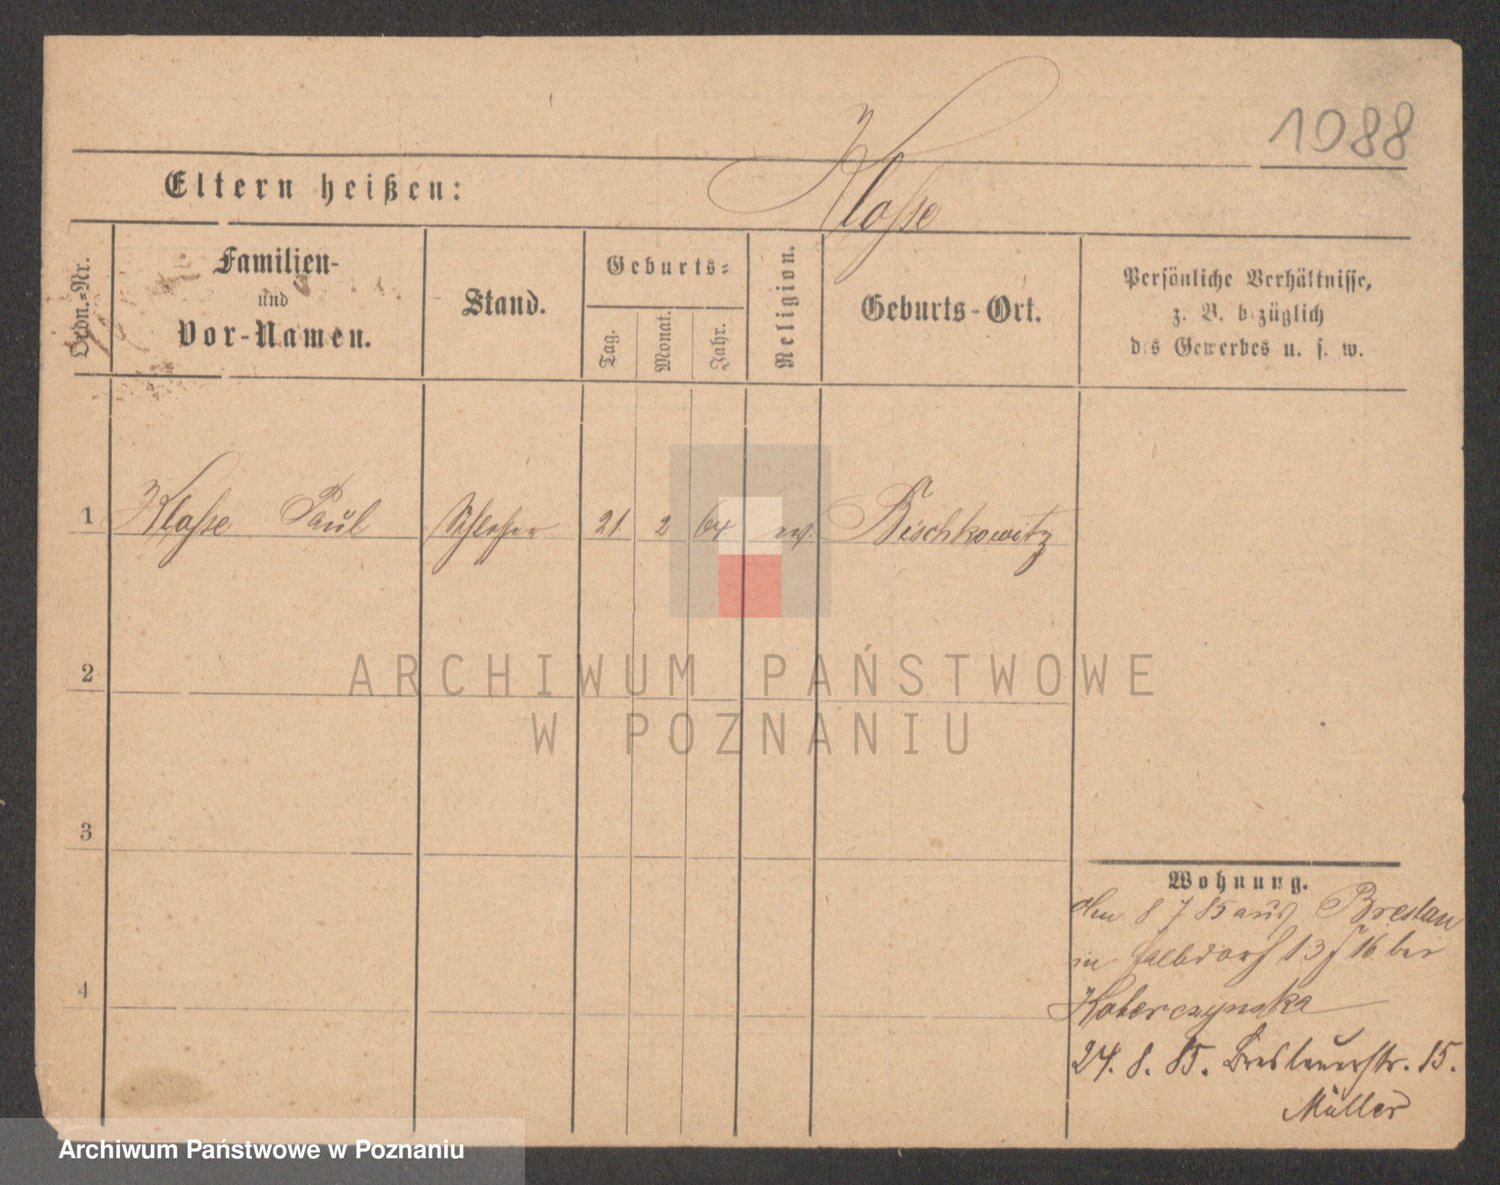 1088
Klosse
Eltern heißen:
Ordn.=Nr.
Familien-
und
Vor-Namen.
Stand.
Geburts=
Tag.
Monat.
Jahr.
Religion.
Geburts-Ort.
Persönliche Verhältnisse,
z. B. bezüglich
des Gewerbes u. s. w.
1 Klosse Paul Schlosser 21. 2 64 ev. Bischkowitz
2
3
4
ARCHIWUM PAŃSTWOWE
W POZNANIU
Wohnung.
8 7 85 aus Breslau
in Halbdorf 13 16 bei
24. 8. 85. Breslauerstr. 15.
Müller
Archiwum Państwowe w Poznaniu